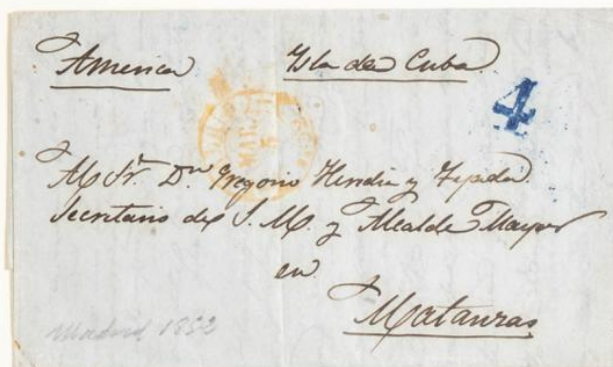 America Isla de Cuba
4
M. Sr. Dn. Gregorio Heredia y Tejada
Secretario de S. M. y Alcalde Mayor
en
Matanzas
Madrid 1853